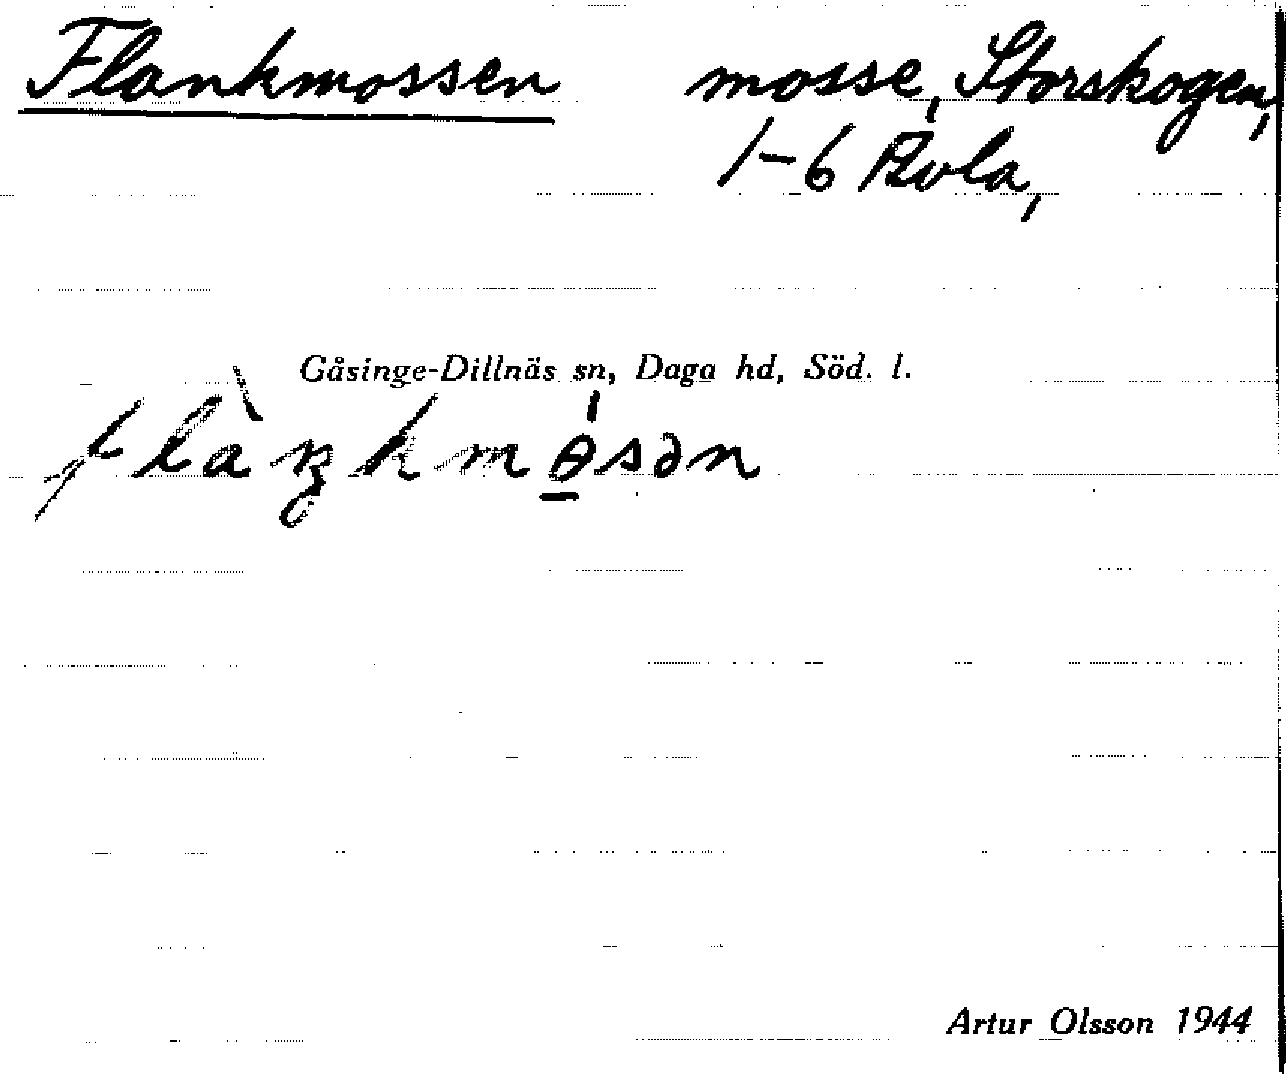 Flankmossen mosse, Storskogen,
1-6 Avla,
Gåsinge-Dillnäs sn, Daga hd, Söd. l.
flàŋkmɵ̲́sən
Artur Olsson 1944